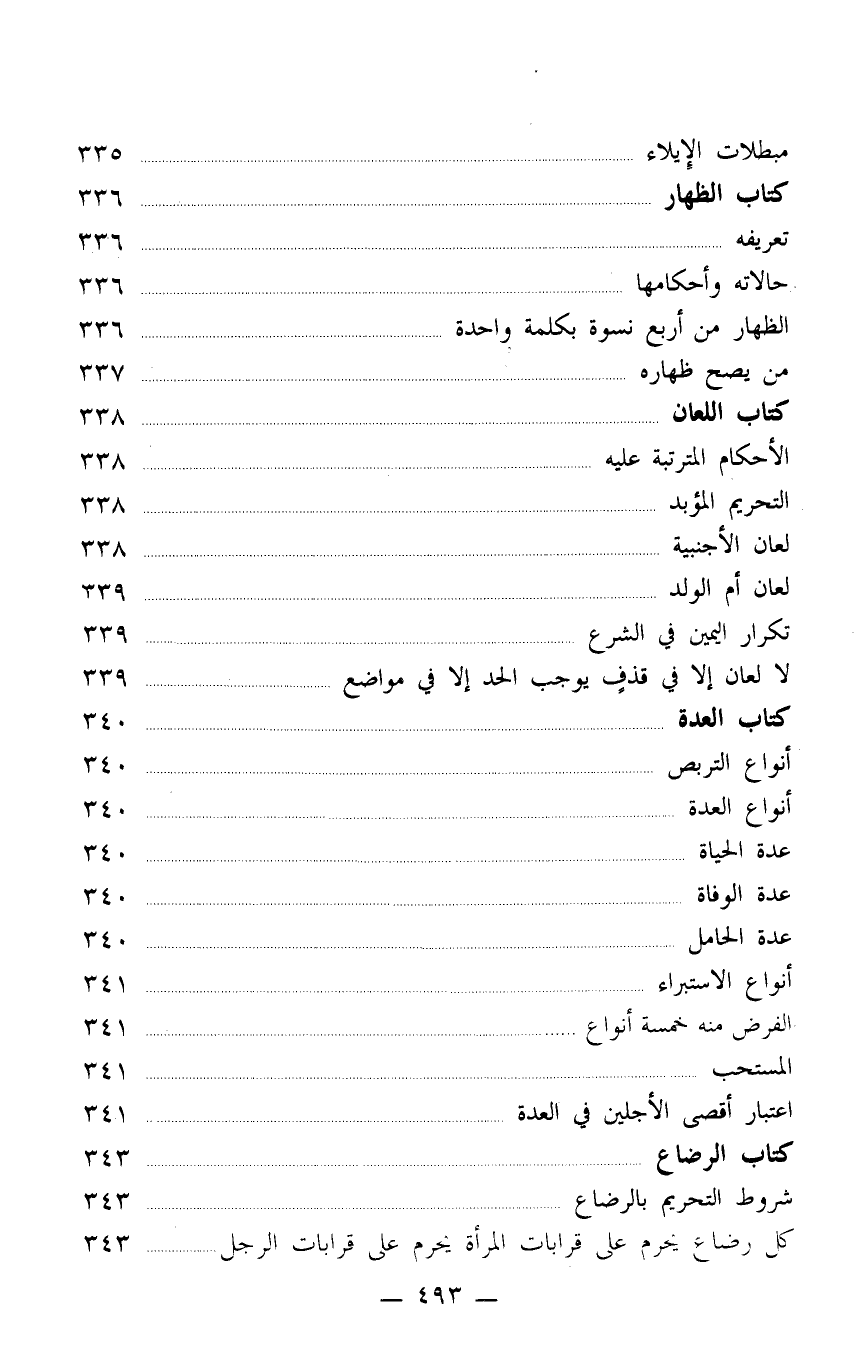 مبطلات الإيلاء ........ ٣٣٥
كتاب الظهار ........ ٣٣٦
تعريفه ........ ٣٣٦
حالاته وأحكامها ........ ٣٣٦
الظهار من أربع نسوة بكلمة واحدة ........ ٣٣٦
من يصح ظهاره ........ ٣٣٧
كتاب اللعان ........ ٣٣٨
الأحكام المترتبة عليه ........ ٣٣٨
التحريم المؤبد ........ ٣٣٨
لعان الأجنبية ........ ٣٣٨
لعان أم الولد ........ ٣٣٩
تكرار اليمين في الشرع ........ ٣٣٩
لا لعان إلا في قذفٍ يوجب الحد إلا في مواضع ........ ٣٣٩
كتاب العدة ........ ٣٤٠
أنواع التربص ........ ٣٤٠
أنواع العدة ........ ٣٤٠
عدة الحياة ........ ٣٤٠
عدة الوفاة ........ ٣٤٠
عدة الحامل ........ ٣٤٠
أنواع الاستبراء ........ ٣٤١
الفرض منه خمسة أنواع ........ ٣٤١
المستحب ........ ٣٤١
اعتبار أقصى الأجلين في العدة ........ ٣٤١
كتاب الرضاع ........ ٣٤٣
شروط التحريم بالرضاع ........ ٣٤٣
كل رضاع يحرم على قرابات المرأة يحرم على قرابات الرجل ........ ٣٤٣
— ٤٩٣ —